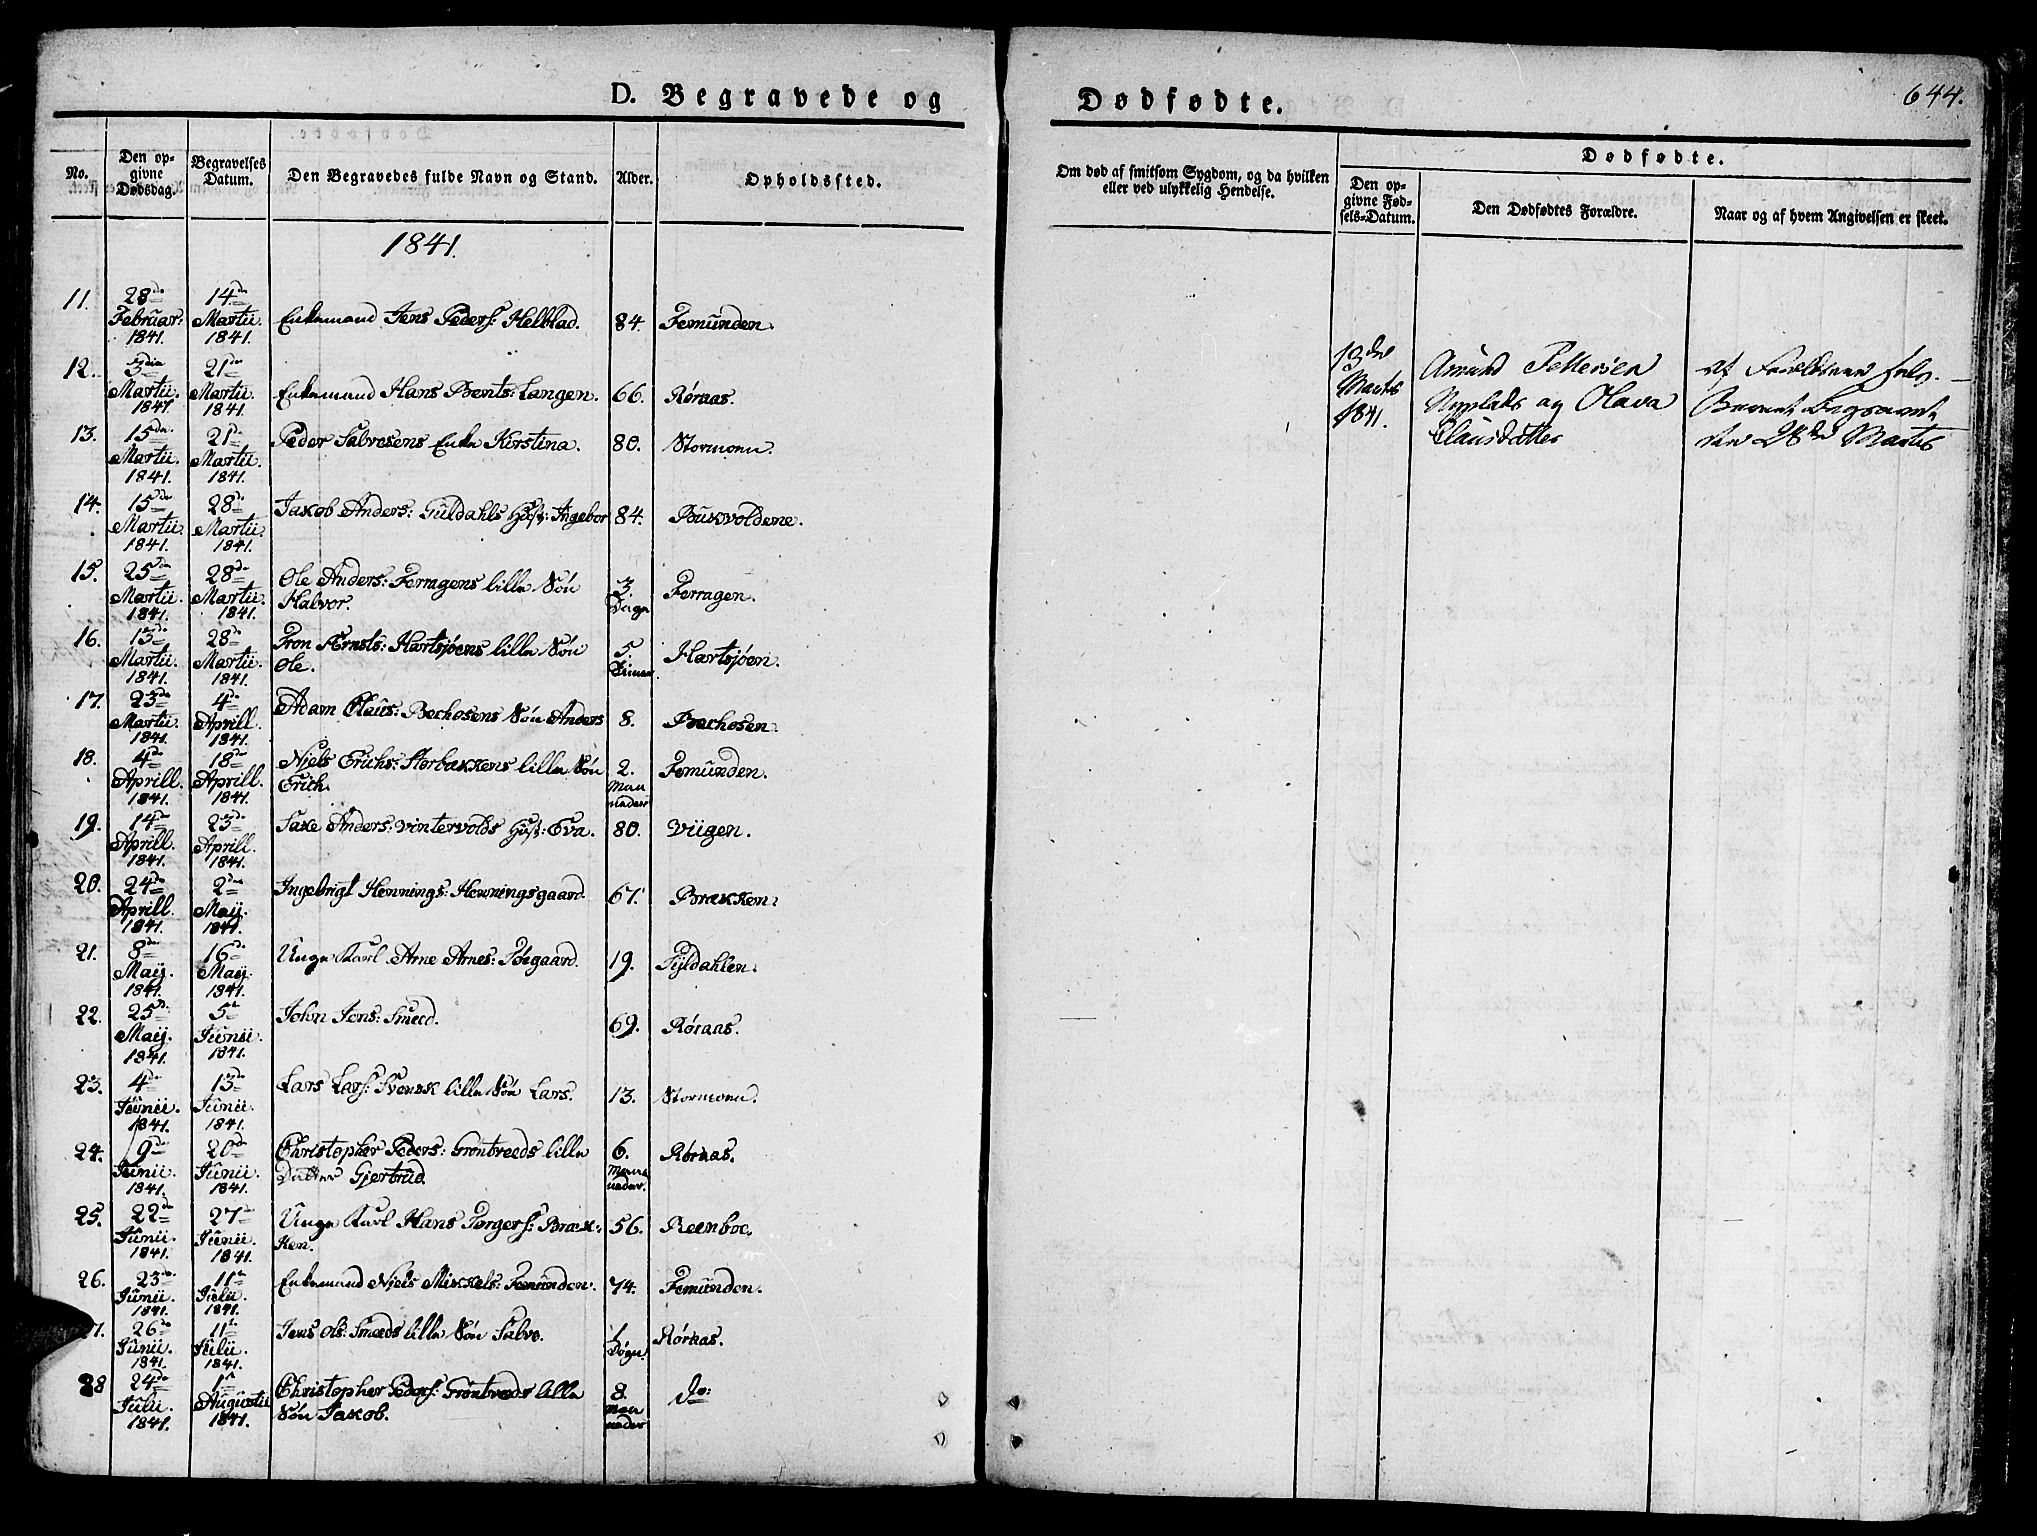 D. Begravede og
Dødfødte.
644.
No.
Den op-
givne
Dødsdag.
Begravelses
Datum.
Den Begravedes fulde Navn og Stand.
Alder.
Opholdssted.
Om død af smitsom Sygdom, og da hvilken
eller ved ulykkelig Hendelse.
Dødfødte.
Den op-
givne Fød-
sels-Datum.
Den Dødfødtes Forældre.
Naar og af hvem Angivelsen er skeet.
1841.
11. 28de Februar: 1841. 14de Martii. 1841. Enkemand Jens Peders: Helblad. 84. Femunden.
12. 3die Martii. 1841. 21de Martii. 1841. Enkemand Hans Bents: Langen. 66. Røraas.
13. 15de Martii. 1841. 21de Martii. 1841. Peder Salvesens Enke Kirstina. 80. Stormoen.
14. 15de Martii. 1841. 28de Martii. 1841. Jakob Anders: Guldahls Hust: Ingebor 84. Bukvoldene.
15. 25de Martii. 1841. 28de Martii. 1841. Ole Anders: Ferragens lille Søn
Halvor. 3. Dage Ferragen.
16. 13de Martii. 1841. 28de Martii. 1841. Tron Ernsts: Hartsjøens lille Søn
Ole. 5. Timer Hartsjøen.
17. 23de Martii. 1841. 4de Aprill. 1841. Adam Claus: Bechosens Søn Anders 8. Bechosen.
18. 4de Aprill. 1841. 18de Aprill. 1841. Niels Erichs: Storbækkens lille Søn
Erich. 2. Maa
neder Femunden.
19. 14de Aprill. 1841. 23de Aprill. 1841. Saxe Anders: Vintervolds Hust: Eva. 80. Viigen.
20. 24de Aprill. 1841. 2den Maij. 1841. Ingebrigt Hennings: Henningsgaard. 67. Brækken.
21. 8de Maij. 1841. 16de Maij. 1841. Unge Karl Arne Arnes: Torgaard. 19. Tyldahlen.
22. 25de Maij. 1841. 5te Junii. 1841. John Jens: Smed. 69. Røraas.
23. 4de Junii. 1841. 13de Junii. 1841. Lars Lars: Svensk lille Søn Lars. 13. Stormoen.
24. 9de Junii. 1841. 20de Junii. 1841. Christopher Peders: Grønbreds lille
Datter Gjertrud. 6. Maa
neder. Røraas.
25. 22de Junii. 1841. 27de Junii. 1841. Unge Karl Hans Torgers: Bræk-
ken. 56. Reenboe.
26. 23de Junii. 1841. 11te Julii. 1841. Enkemand Niels Mikkels: Femunden. 74. Femunden.
27. 26de Junii. 1841. 11te Julii. 1841. Jens Ols: Smeds lille Søn Salve. 1. Døgn. Røraas.
28 24de Julii. 1841. 1ste Augustii 1841. Christopher Peders: Grønbreds lille
Søn Jakob. 8. Maa
neder do:
Martii
1841.
Amund Pettersen
og Olava
Clausdatter
af Forældrene selv.
Barnet begravet
den 28de Martii